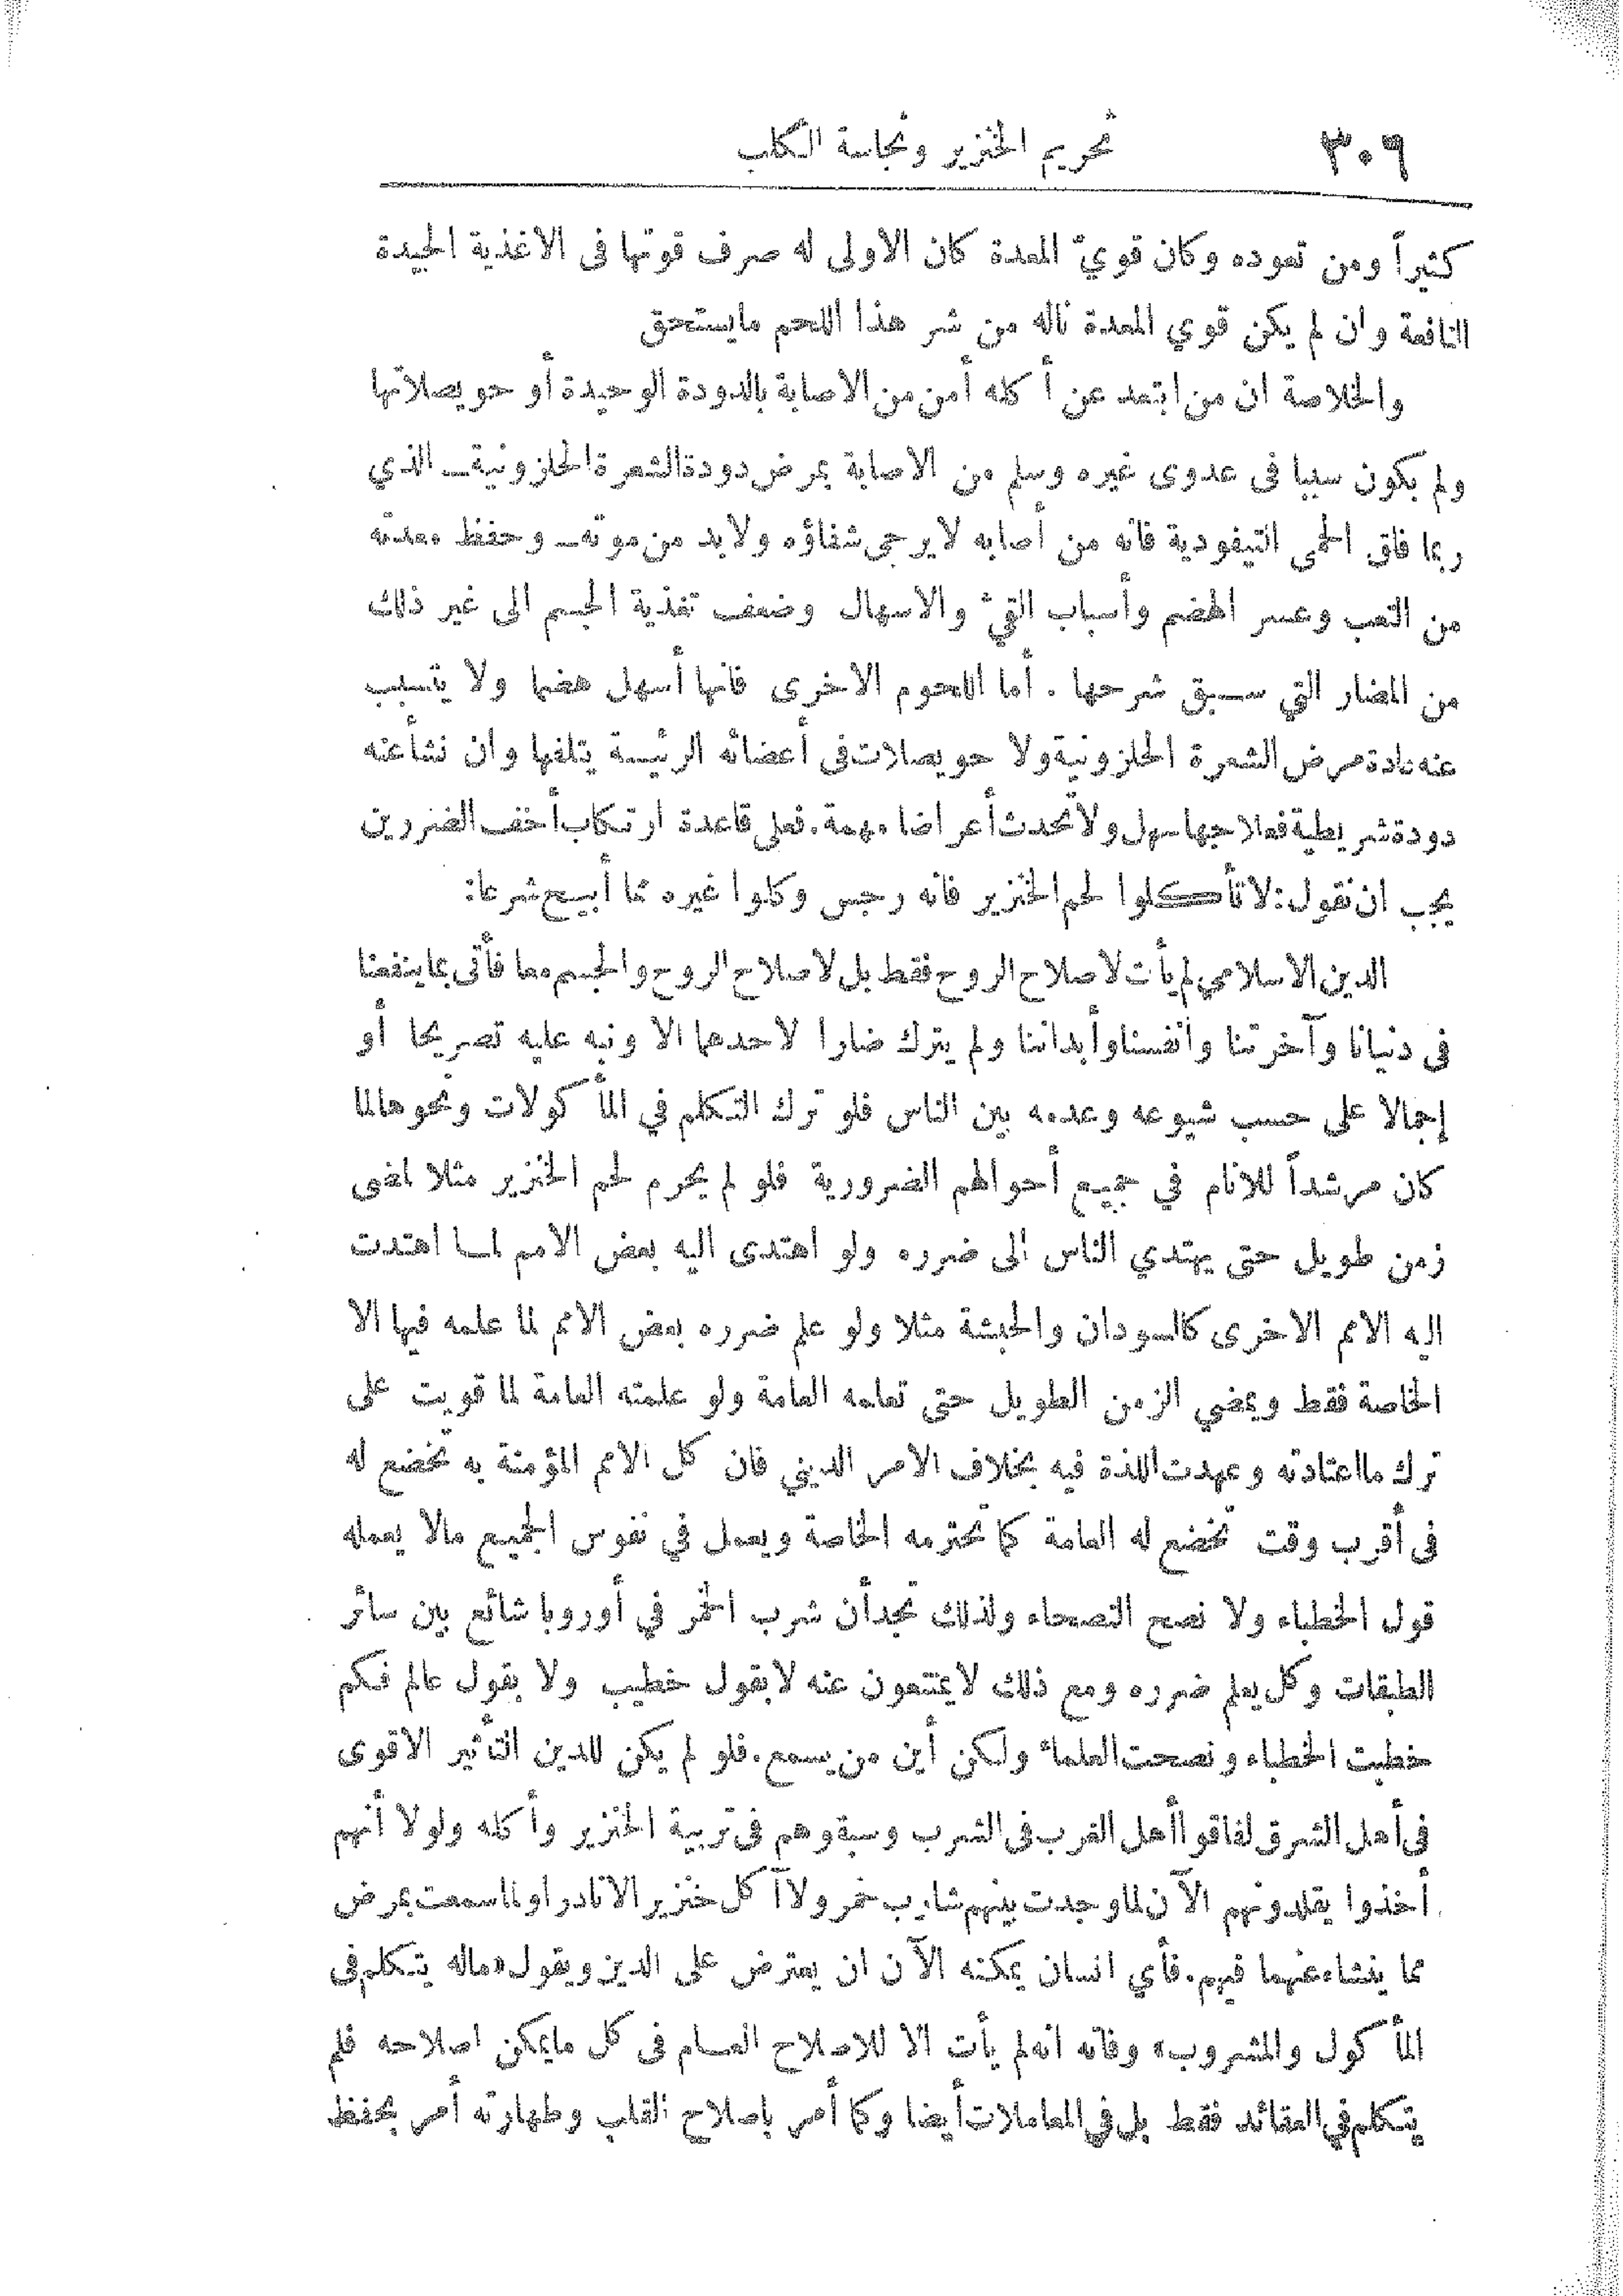 ٣٠٦ تحريم الخنزير ونجاسة الكلب
كثيراً ومن تعوده وكان قويّ المعدة كان الاولى له صرف قوتها فى الاغذية الجيدة
النافعة وان لم يكن قوي المعدة ناله من شر هذا اللحم مايستحق
والخلاصة ان من ابتعد عن أكله أمن من الاصابة بالدودة الوحيدة أو حويصلاتها
ولم يكون سببا فى عدوى غيره وسلم من الاصابة بمرض دودة الشعرة الحلزونية ـ الذي
ربما فاق الحمى التيفودية فانه من أصابه لا يرجى شفاؤه ولابد من موته ـ وحفظ معدته
من التعب وعسر الهضم وأسباب القيْ والاسهال وضعف تغذية الجسم الى غير ذلك
من المضار التي سبق شرحها . أما اللحوم الاخرى فانها أسهل هضما ولا يتسبب
عنه عادة مرض الشعرة الحلزونية ولا حويصلات فى أعضائه الرئيسة يتلفها وان نشأ عنه
دودة شريطية فعلاجها سهل ولا تحدث أعراضا مهمة . فعلى قاعدة ارتكاب أخف الضررين
يجب ان نقول : لا تأكلوا لحم الخنزير فانه رجس وكلوا غيره مما أبيح شرعا :
الدين الاسلامي لم يأت لاصلاح الروح فقط بل لاصلاح الروح والجسم معا فأتى بما ينفعنا
فى دنيانا وآخرتنا وانفسنا وأبداننا ولم يترك ضارا لاحدهما الا ونبه عليه تصريحا أو
إجمالا على حسب شيوعه وعدمه بين الناس فلو ترك التكلم في المأكولات ونحوها لما
كان مرشداً للانام في جميع أحوالهم الضرورية فلو لم يحرم لحم الخنزير مثلا لمضى
زمن طويل حتى يهتدي الناس الى ضرره ولو اهتدى اليه بعض الامم لما اهتدت
اليه الامم الاخرى كالسودان والحبشة مثلا ولو علم ضرره بعض الامم لما علمه فيها الا
الخاصة فقط ويمضي الزمن الطويل حتى تعلمه العامة ولو علمته العامة لما قويت على
ترك ما اعتادته وعهدت اللذة فيه بخلاف الامر الديني فان كل الامم المؤمنة به تخضع له
فى أقرب وقت تخضع له العامة كما تحترمه الخاصة ويعمل في نفوس الجميع مالا يعمله
قول الخطباء ولا نصح النصحاء ولذلك نجد أن شرب الخمر في أوروبا شائع بين سائر
الطبقات وكل يعلم ضرره ومع ذلك لا يمتنعون عنه لا بقول خطيب ولا بقول عالم فكم
خطبت الخطباء ونصحت العلماء ولكن أين من يسمع . فلو لم يكن للدين التأثير الاقوى
فى أهل الشرق لفاقوا أهل الغرب فى الشرب وسبقوهم فى تربية الخنزير وأكله ولولا أنهم
أخذوا يقلدونهم الآن لما وجدت بينهم شارب خمر ولا آكل خنزير الا نادرا ولما سمعت بمرض
مما ينشاء عنهما فيهم . فأي انسان يمكنه الآن ان يعترض على الدين ويقول « ماله يتكلم فى
المأكول والمشروب » وفاته انه لم يأت الا للاصلاح العام فى كل ما يمكن اصلاحه فلم
يتكلم في العقائد فقط بل في المعاملات أيضا وكما أمر باصلاح القلب وطهارته أمر بحفظ